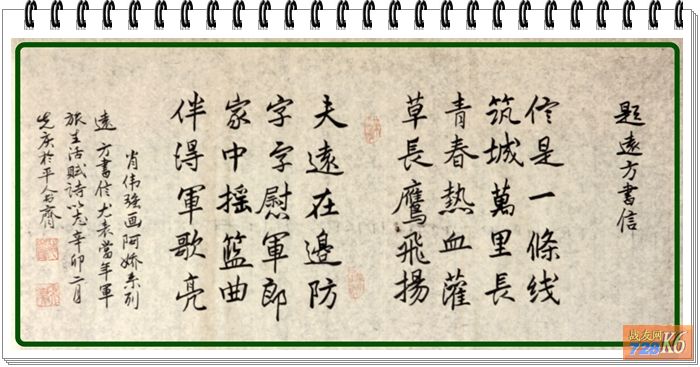 题遠方書信
信是一條线
筑城萬里長
青春熱血灌
草長鷹飛揚
夫遠在邊防
字字慰軍郎
家中摇籃曲
伴得軍歌亮
肖伟强画阿娇系列
遠方書信尤表當年軍
旅生活赋詩以志辛卯二月
光庆於平人书齋
战友网
729K6